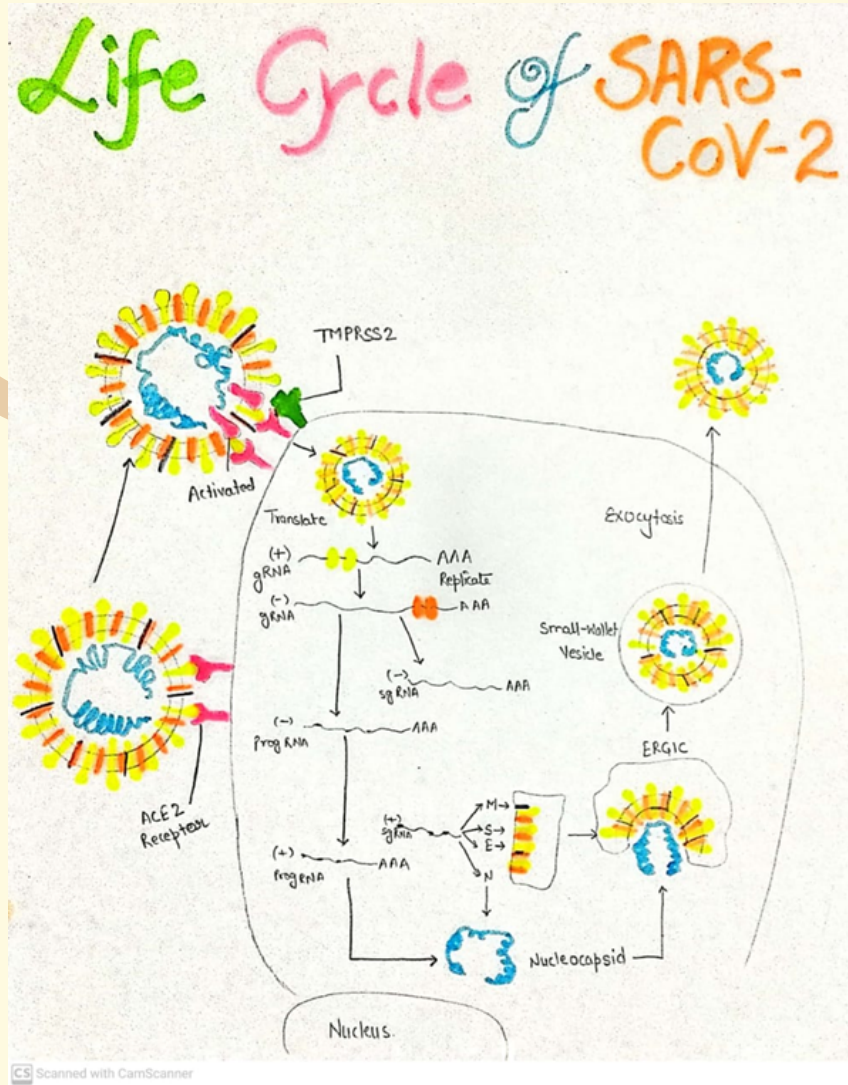 Life Cycle of SARS-
CoV-2
TMPRSS2
Activated
Translate
(+)
gRNA
AAA
Replicate
(-)
gRNA
AAA
(-)
sgRNA
AAA
(-)
Prog RNA
AAA
ACE2
Receptor
(+)
sgRNA
M
S
E
N
(+)
Prog RNA
AAA
Nucleocapsid
Exocytosis
Small-Wallet
Vesicle
ERGIC
Nucleus.
CS Scanned with CamScanner